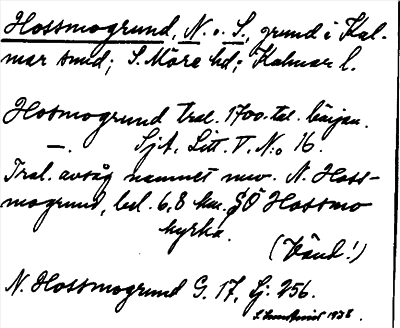 Hossmogrund, N. o. S., grund i Kal-
mar sund; S. Möre hd; Kalmar l.
Hosmogrund Tral. 1700-tal. början.
—. Sjk. Litt. V. N:o 16.
Tral. avsåg namnet nuv. N. Hoss-
mogrund, bel. 6,8 km. SÖ Hossmo
kyrka.
(Vänd!)
N. Hossmogrund G. 17, Lj. 256.
1938.